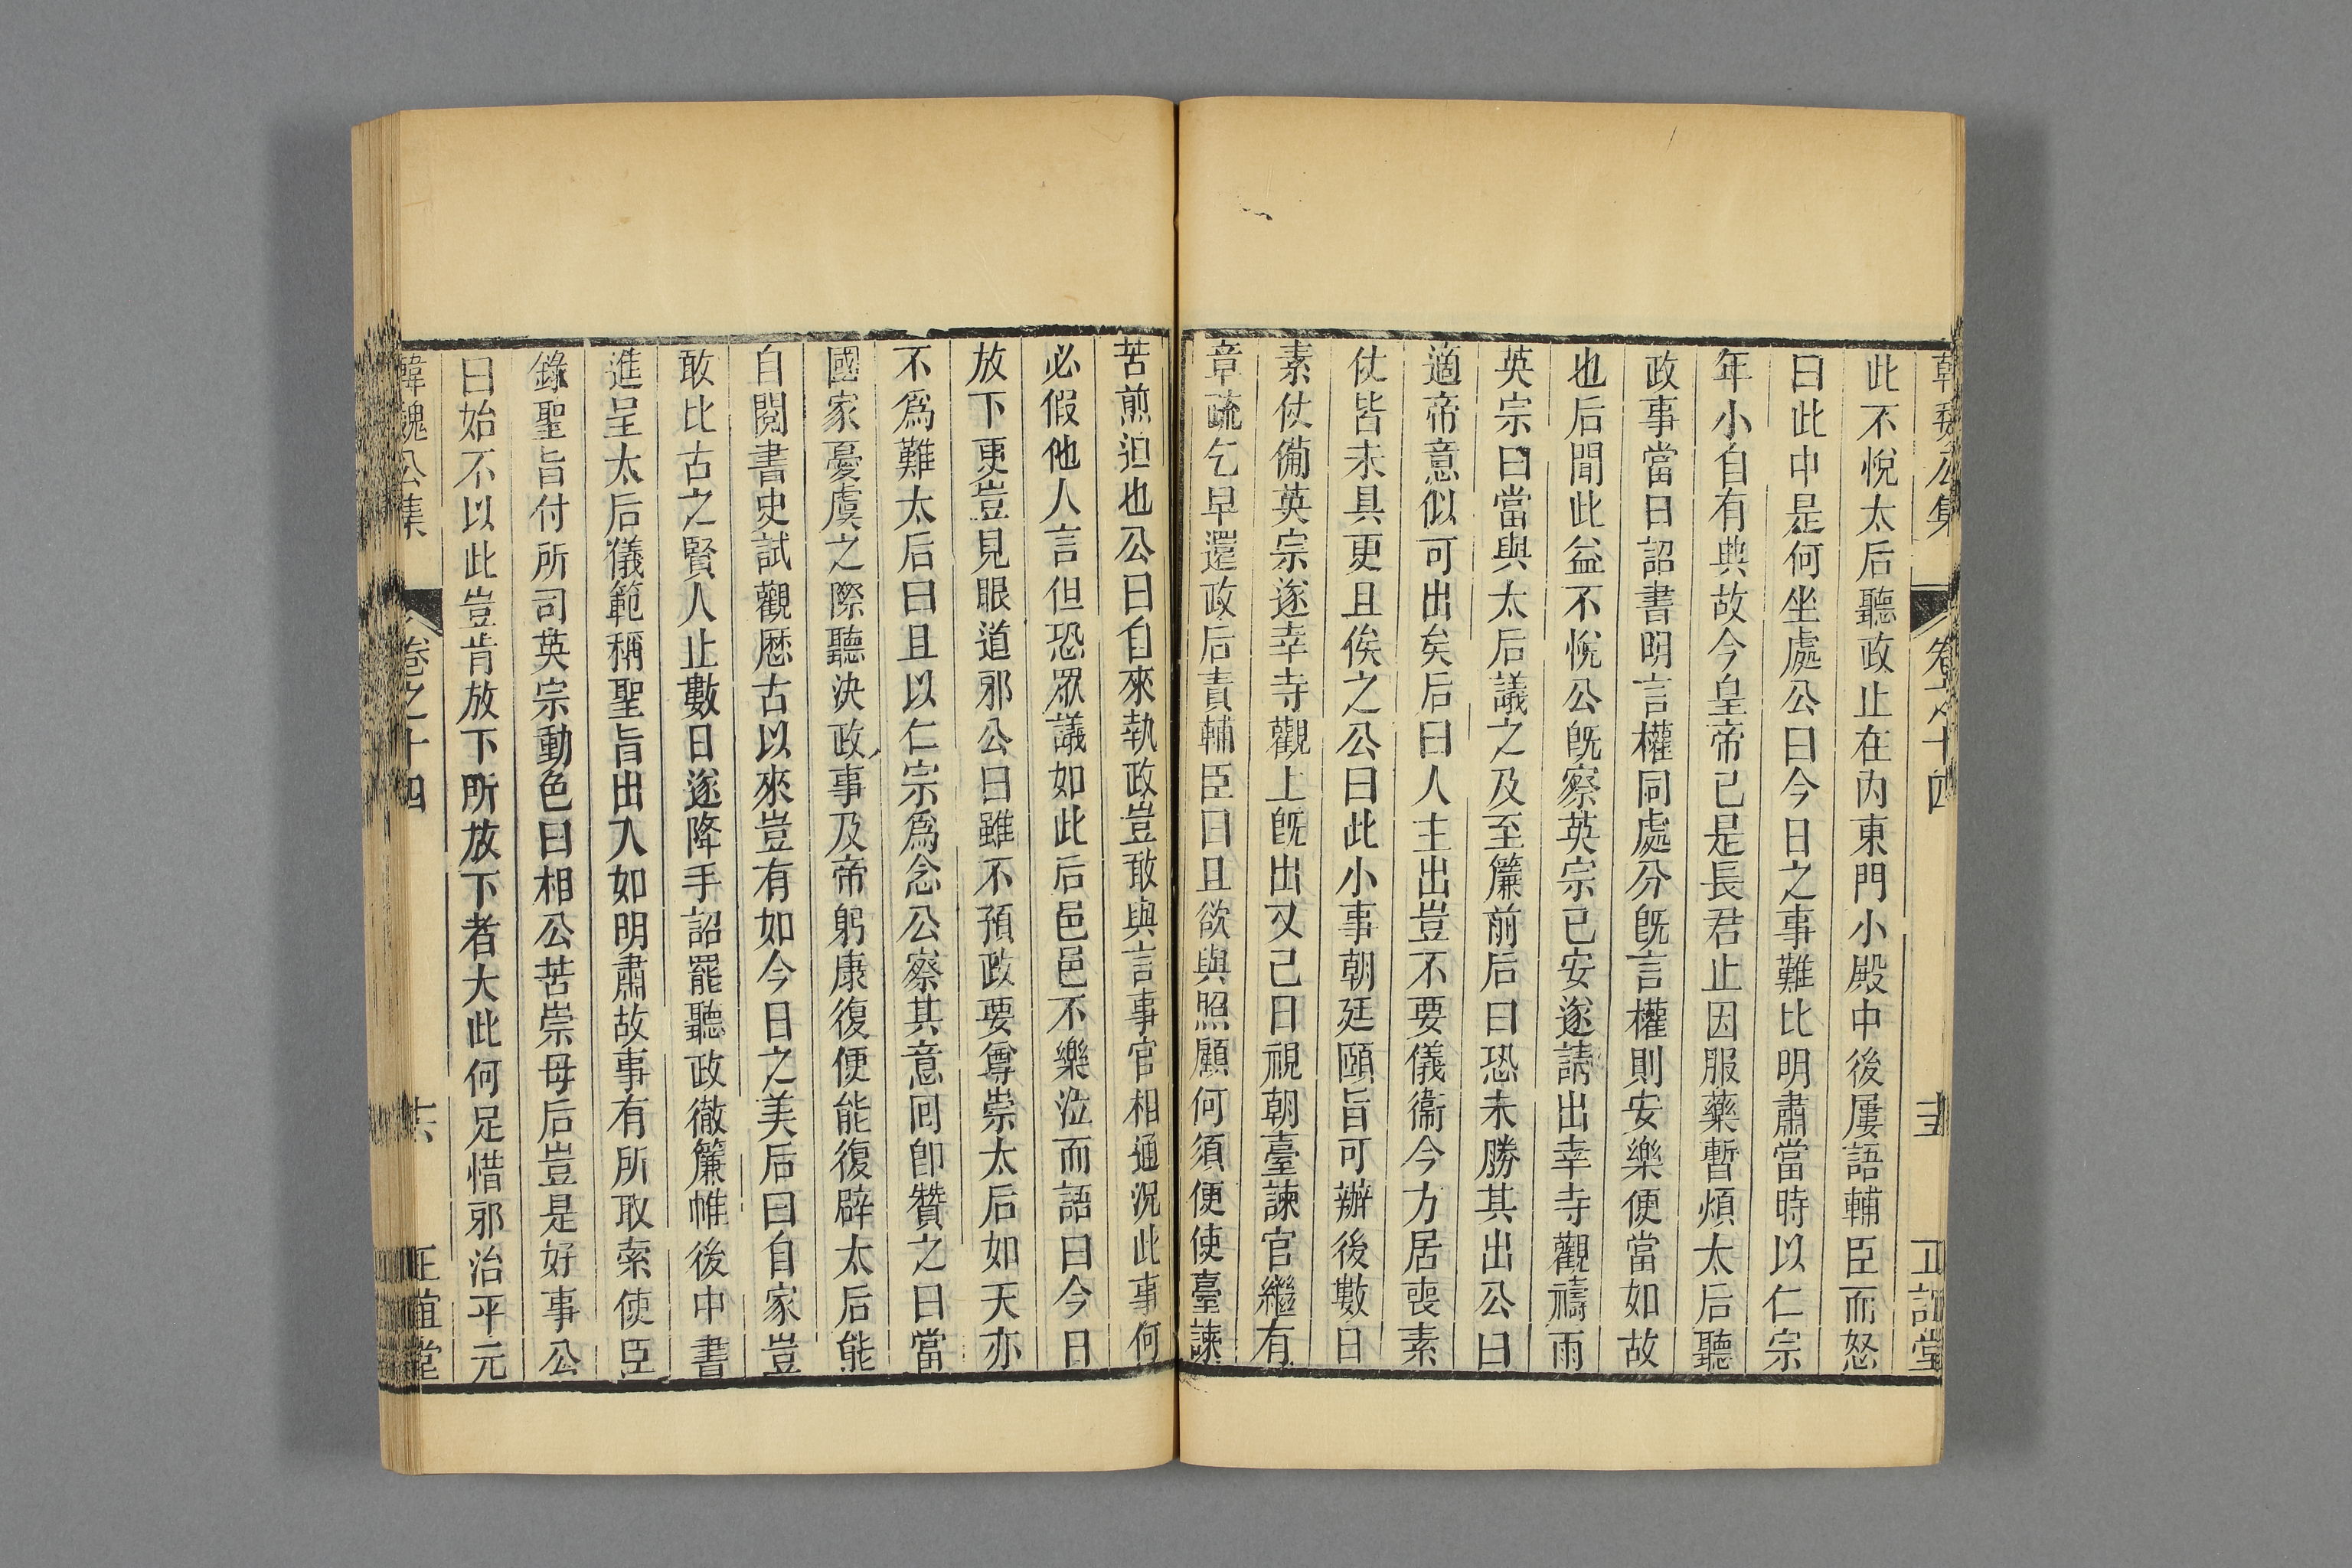 韓魏公集 卷之十四 十五 正誼堂
此不悅太后聽政止在內東門小殿中後屢語輔臣而怒
曰此中是何坐處公曰今日之事難比明肅當時以仁宗
年小自有典故今皇帝已是長君止因服藥暫煩太后聽
政事當日詔書明言權同處分旣言權則安樂便當如故
也后聞此益不悅公旣察英宗已安遂請出幸寺觀禱雨
英宗曰當與太后議之及至簾前后曰恐未勝其出公曰
適帝意似可出矣后曰人主出豈不要儀衞今方居喪素
仗皆未具更且俟之公曰此小事朝廷頤旨可辦後數日
素仗備英宗遂幸寺觀上旣出又已日視朝臺諫官繼有
章疏乞早還政后責輔臣曰且欲與照顧何須便使臺諫
苦煎迫也公曰自來執政豈敢與言事官相通況此事何
必假他人言但恐眾議如此后邑邑不樂泣而語曰今日
放下更豈見眼道邪公曰雖不預政要尊崇太后如天亦
不爲難太后曰且以仁宗爲念公察其意回卽贊之曰當
國家憂虞之際聽決政事及帝躬康復便能復辟太后能
自閱書史試觀歷古以來豈有如今日之美后曰自家豈
敢比古之賢人止數日遂降手詔罷聽政徹簾帷後中書
進呈太后儀範稱聖旨出入如明肅故事有所取索使臣
錄聖旨付所司英宗動色曰相公苦崇母后豈是好事公
曰始不以此豈肯放下所放下者大此何足惜邪治平元
韓魏公集 卷之十四 十六 正誼堂